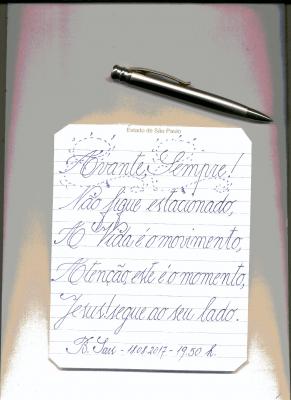 Estado de São Paulo
Avante, Sempre!
Não fique estacionado,
A Vida é o movimento,
Atenção, este é o momento,
Jesus! segue ao seu lado.
2017 - 19:50 h.